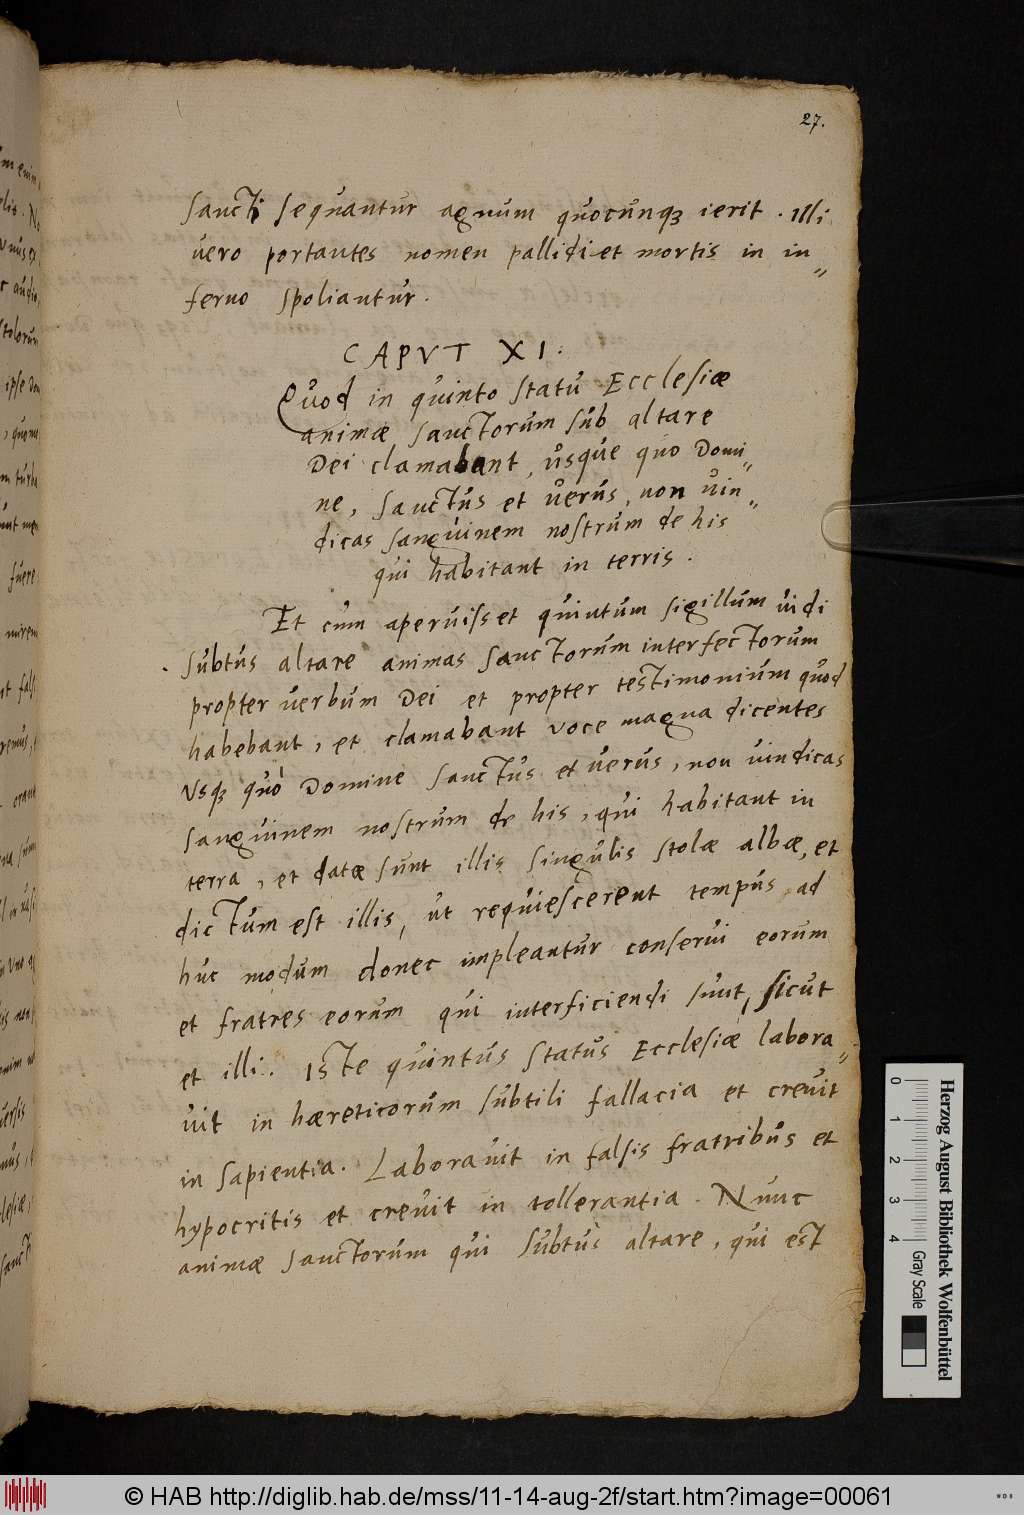 27.
sancti sequantur agnum quocunqꝫ ierit. Illi
vero portantes nomen pallidi et mortis in in„
ferno spoliantur.
CAPVT XI.
Quod in quinto statu Ecclesiæ
animæ sanctorum sub altare
Dei clamabant, usque quo Domi„
ne, sanctus et verus, non vin„
dicas sanguinem nostrum de his
qui habitant in terris.
Et cum aperuisset quintum sigillum vidi
subtus altare animas sanctorum interfectorum
propter verbum Dei et propter testimonium quod
habebant, et clamabant voce magna dicentes
Vsqꝫ quò Domine sanctus et verus, non vindicas
sanguinem nostrum de his, qui habitant in
terra, et datæ sunt illis singulis stolæ albæ, et
dictum est illis, ut requiescerent tempus ad
huc modum donec impleantur conservi eorum
et fratres eorum qui interficiendi sunt, sicut
et illi. Iste quintus status Ecclesiæ labora„
vit in hæreticorum subtili fallacia et crevit
in sapientia. Laboravit in falsis fratribus et
hypocritis et crevit in tollerantia. Nunc
animæ sanctorum qui subtus altare, qui est
Herzog August Bibliothek Wolfenbüttel
0 1 2 3 4 Gray Scale
© HAB http://diglib.hab.de/mss/11-14-aug-2f/start.htm?image=00061